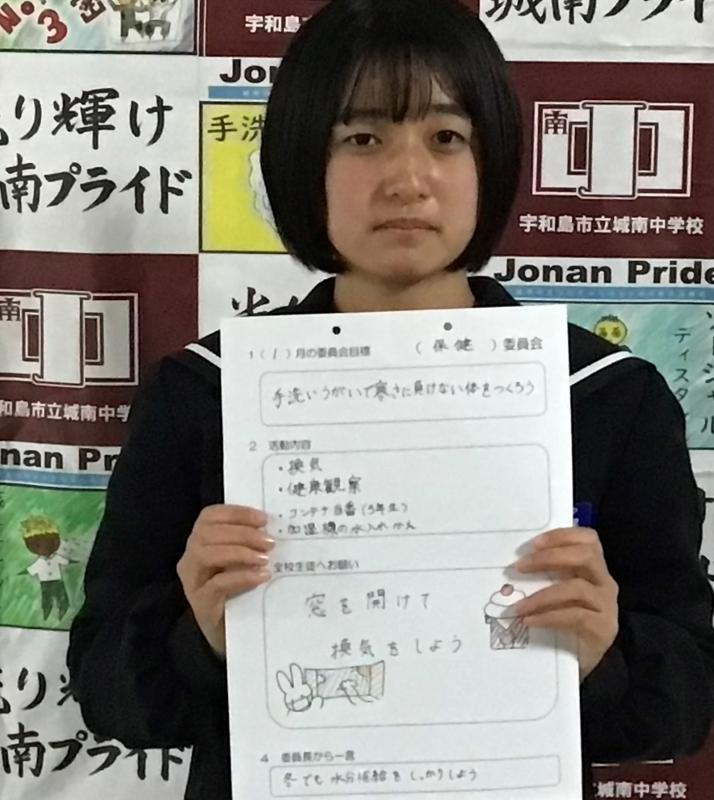 No.3
宇和島
城南プライド
Jon
り輝け
南プライド
手洗
南
宇和島市立城南中学校
Jonan Pride
南
和島市立城南中学
nan Pr
ソーシャル
ディスタ
1 ( 1 ) 月の委員会目標 ( 保健 ) 委員会
手洗いうがいで寒さに負けない体をつくろう
2 活動内容
・換気
・健康観察
・コンテナ当番(3年生)
・加湿機の水入れかえ
全校生徒へお願い
窓を開けて
換気をしよう
4 委員長から一言
冬でも水分補給をしっかりしよう
り輝
南プライド
宇和島市立城南中学校